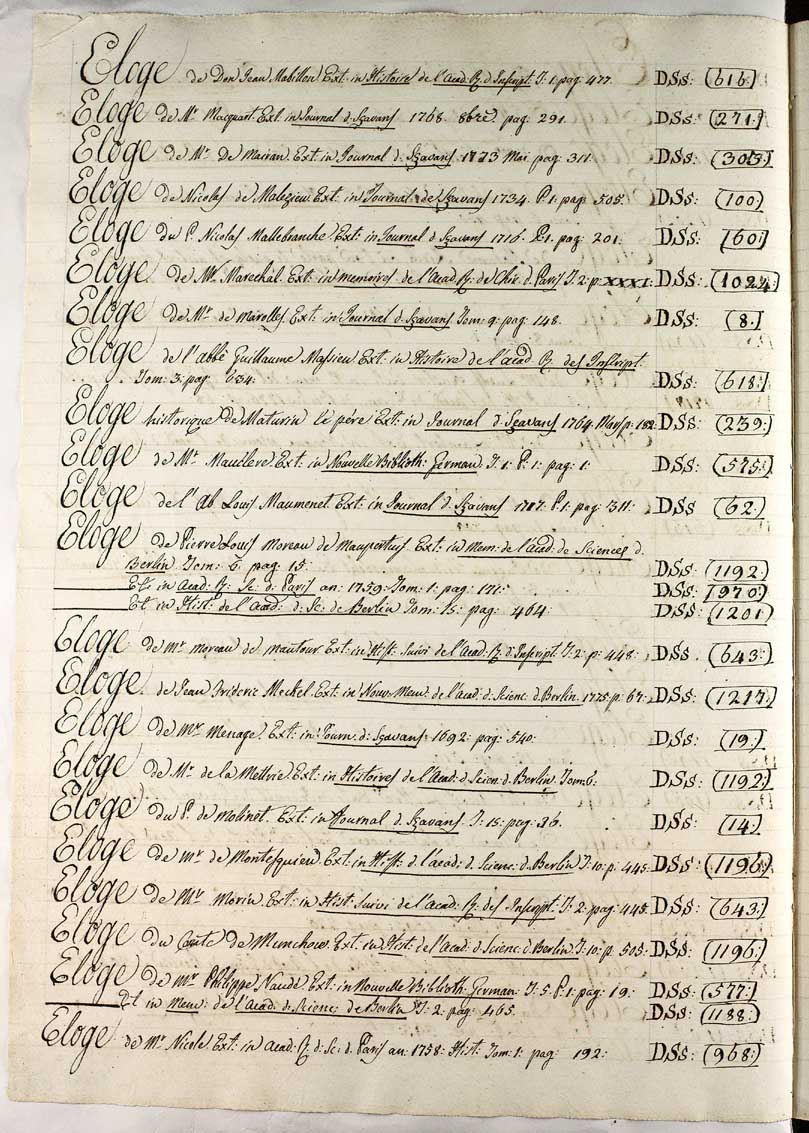 Eloge de Don Jean Mabillon Ext: in Histoire de l'Acad: R. d'Inscript. T: 1: pag: 477. DSs: (616:)
Eloge de Mr Macquart. Ext. in Journal d: Sçavans 1768. 8bre. pag: 291. DSs: (271:)
Eloge de Mr. De Mairan. Ext: in Journal d: Sçavans. 1773 Mai pag: 311: DSs: (305:)
Eloge de Nicolas de Malezieu. Ext: in Journal de Sçavans 1734. P: 1: pag: 505. DSs: (100:)
Eloge du P. Nicolas Mallebranche. Ext: in Journal d. Sçavans 1716. P: 1. pag: 201. DSs: (60:)
Eloge de Mr. Marechal. Ext: in memoires de l'Acad: R: de Chir. d. Paris T: 2: p: XXXI: DSs: (1024:)
Eloge de Mr. de Mirolles Ext: in Journal d: Sçavans Tom: 9: pag: 148. DSs: (8.)
Eloge de l'abbé Guillaume Massieu Ext: in Histoire de l'acad R. des Inscript.
Tom: 3: pag: 634: DSs: (618:)
Eloge historique de Maturin le pére Ext: in Journal d. Sçavans 1764. Mars p: 182: DSs: (239:)
Eloge de Mr. Mauclere Ext: in Nouvelle Biblioth: German: T: 1: P: 1: pag: 1: DSs: (575:)
Eloge de l'Ab. Louis Maumenet. Ext: in Journal d. Sçavans 1717. P: 1: pag: 311: DSs: (62.)
Eloge de Pierre Louis Moreau de Maupertuis Ext: in Mem: de l'acad: de Sciences d.
Berlin. Tom: 6 pag: 15: DSs: (1192:)
Et: in Acad: R: Sc: d: Paris an: 1759: Tom: 1: pag: 171: DSs: (970:)
Et in Hist: de l'Acad: d: Sc: de Berlin Tom: 15: pag: 464: DSs: (1201)
Eloge de mr moreau de mautour Ext: in Hist: Suivi de l'Acad: R: d'Inscript. T: 2: p: 448: DSs. (643:)
Eloge de Jean Frideric Meckel. Ext: in Nouv. Mem: de l'acad: d: Scienc: d: Berlin. 1775 p: 67: DSs: (1217:)
Eloge de Mr Menage. Ext: in Journ. d: Sçavans: 1692: pag: 540: DSs: (19:)
Eloge de Mr. de la Mettrie. Ext: in Histoires de l'Acad: d. Scien: d: Berlin. Tom: 6: DSs: (1192:)
Eloge du P. de Molinet. Ext: in Journal d. Sçavans T: 15: pag: 26. DSs: (14:)
Eloge de mr. de Montesquieu. Ext: in Hist: d. l'acad: d. Scienc: d. Berlin T: 10: p: 445: DSs: (1196:)
Eloge de Mr Morin. Ext: in Hist: Suivi de l'Acad: R: des Inscript: T: 2: pag: 445: DSs: (643:)
Eloge du Conte de Munchow. Ext: in Hist: de l'Acad: d. Scienc: d. Berlin. T: 10: p: 505: DSs: (1196:)
Eloge de mr Philippe Naudé Ext: in Nouvelle Biblioth: German: T: 5. P: 1: pag: 19: DSs: (577:)
Et in Mem: de l'Acad: d: Scienc: de Berlin T: 2: pag: 465. DSs: (1188:)
Eloge de mr Nicole Ext: in Acad: R d: Sc: d. Paris an: 1758: Hist: Tom: 1: pag: 192: DSs: (968:)